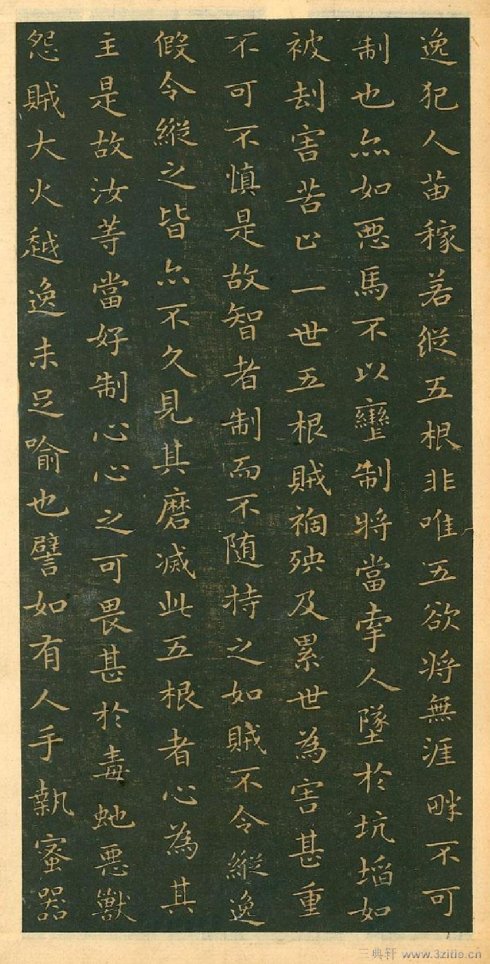 逸犯人苗稼若縱五根非唯五欲將無涯畔不可
制也亦如惡馬不以轡制將當牽人墜於坑埳如
被劫害苦止一世五根賊禍殃及累世為害甚重
不可不慎是故智者制而不随持之如賊不令縱逸
假令縱之皆亦不久見其磨滅此五根者心為其
主是故汝等當好制心心之可畏甚於毒虵惡獸
怨賊大火越逸未足喻也譬如有人手執蜜器
三典轩 www.3zitie.cn